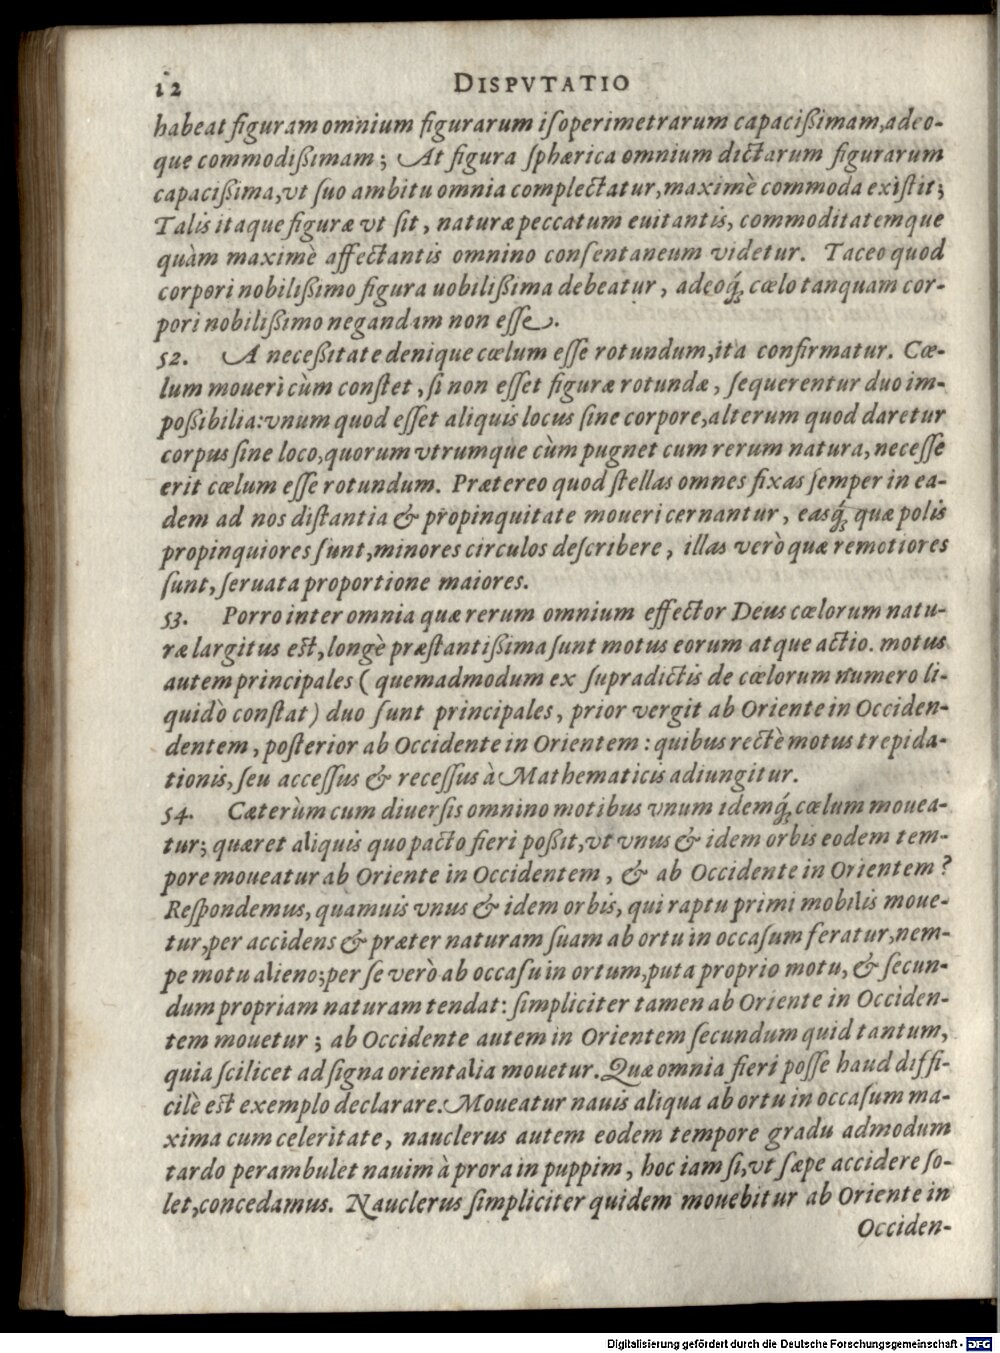 12 DISPVTATIO
habeat figuram omnium figurarum iſoperimetrarum capacißimam,adeo-
que commodißimam; At figura ſphærica omnium dictarum figurarum
capacißima,vt ſuo ambitu omnia complectatur,maximè commoda exiſtit;
Talis itaque figuræ vt ſit, naturæ peccatum euitantis, commoditatemque
quàm maximè affectantis omnino conſentaneum videtur. Taceo quod
corpori nobilißimo figura uobilißima debeatur, adeoq́; cœlo tanquam cor-
pori nobilißimo negandam non eſſe.
52. A neceßitate denique cœlum eſſe rotundum,ita confirmatur. Cœ-
lum moueri cùm conſtet, ſi non eſſet figuræ rotundæ, ſequerentur duo im-
poßibilia:vnum quod eſſet aliquis locus ſine corpore,alterum quod daretur
corpus ſine loco,quorum vtrumque cùm pugnet cum rerum natura, neceſſe
erit cœlum eſſe rotundum. Prætereo quod ſtellas omnes fixas ſemper in ea-
dem ad nos diſtantia & propinquitate moueri cernantur, easq́; quæ polis
propinquiores ſunt,minores circulos deſcribere, illas verò quæ remotiores
ſunt, ſeruata proportione maiores.
53. Porro inter omnia quæ rerum omnium effector Deus cœlorum natu-
ræ largitus est,longè præſtantißima ſunt motus eorum atque actio. motus
autem principales (quemadmodum ex ſupradictis de cœlorum numero li-
quidò conſtat) duo ſunt principales, prior vergit ab Oriente in Occiden-
dentem, poſterior ab Occidente in Orientem: quibus rectè motus trepida-
tionis, ſeu acceſſus & receſſus à Mathematicis adiungitur.
54. Cæterùm cum diuerſis omnino motibus vnum idemq́; cœlum mouea-
tur; quæret aliquis quo pacto fieri poßit,vt vnus & idem orbis eodem tem-
pore moueatur ab Oriente in Occidentem, & ab Occidente in Orientem?
Reſpondemus, quamuis vnus & idem orbis, qui raptu primi mobilis moue-
tur,per accidens & præter naturam ſuam ab ortu in occaſum feratur,nem-
pe motu alieno;per ſe verò ab occaſu in ortum,puta proprio motu, & ſecun-
dum propriam naturam tendat: ſimpliciter tamen ab Oriente in Occiden-
tem mouetur; ab Occidente autem in Orientem ſecundum quid tantum,
quia ſcilicet ad ſigna orientalia mouetur. Quæ omnia fieri poſſe haud diffi-
cilè est exemplo declarare. Moueatur nauis aliqua ab ortu in occaſum ma-
xima cum celeritate, nauclerus autem eodem tempore gradu admodum
tardo perambulet nauim à prora in puppim, hoc iam ſi,vt ſæpe accidere ſo-
let,concedamus. Nauclerus ſimpliciter quidem mouebitur ab Oriente in
Occiden-
Digitalisierung gefördert durch die Deutsche Forschungsgemeinschaft - DFG